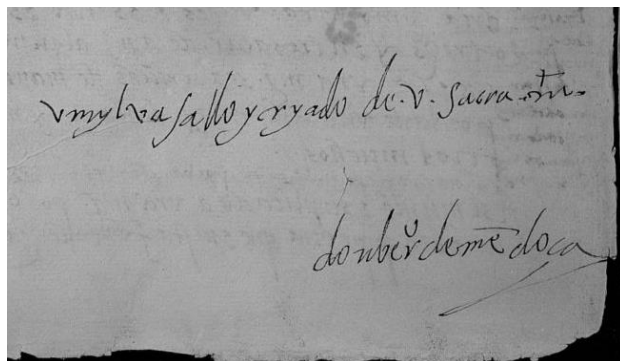 vmyl vasallo y cryado de. v. sacra. m.
don ber de mēdoca